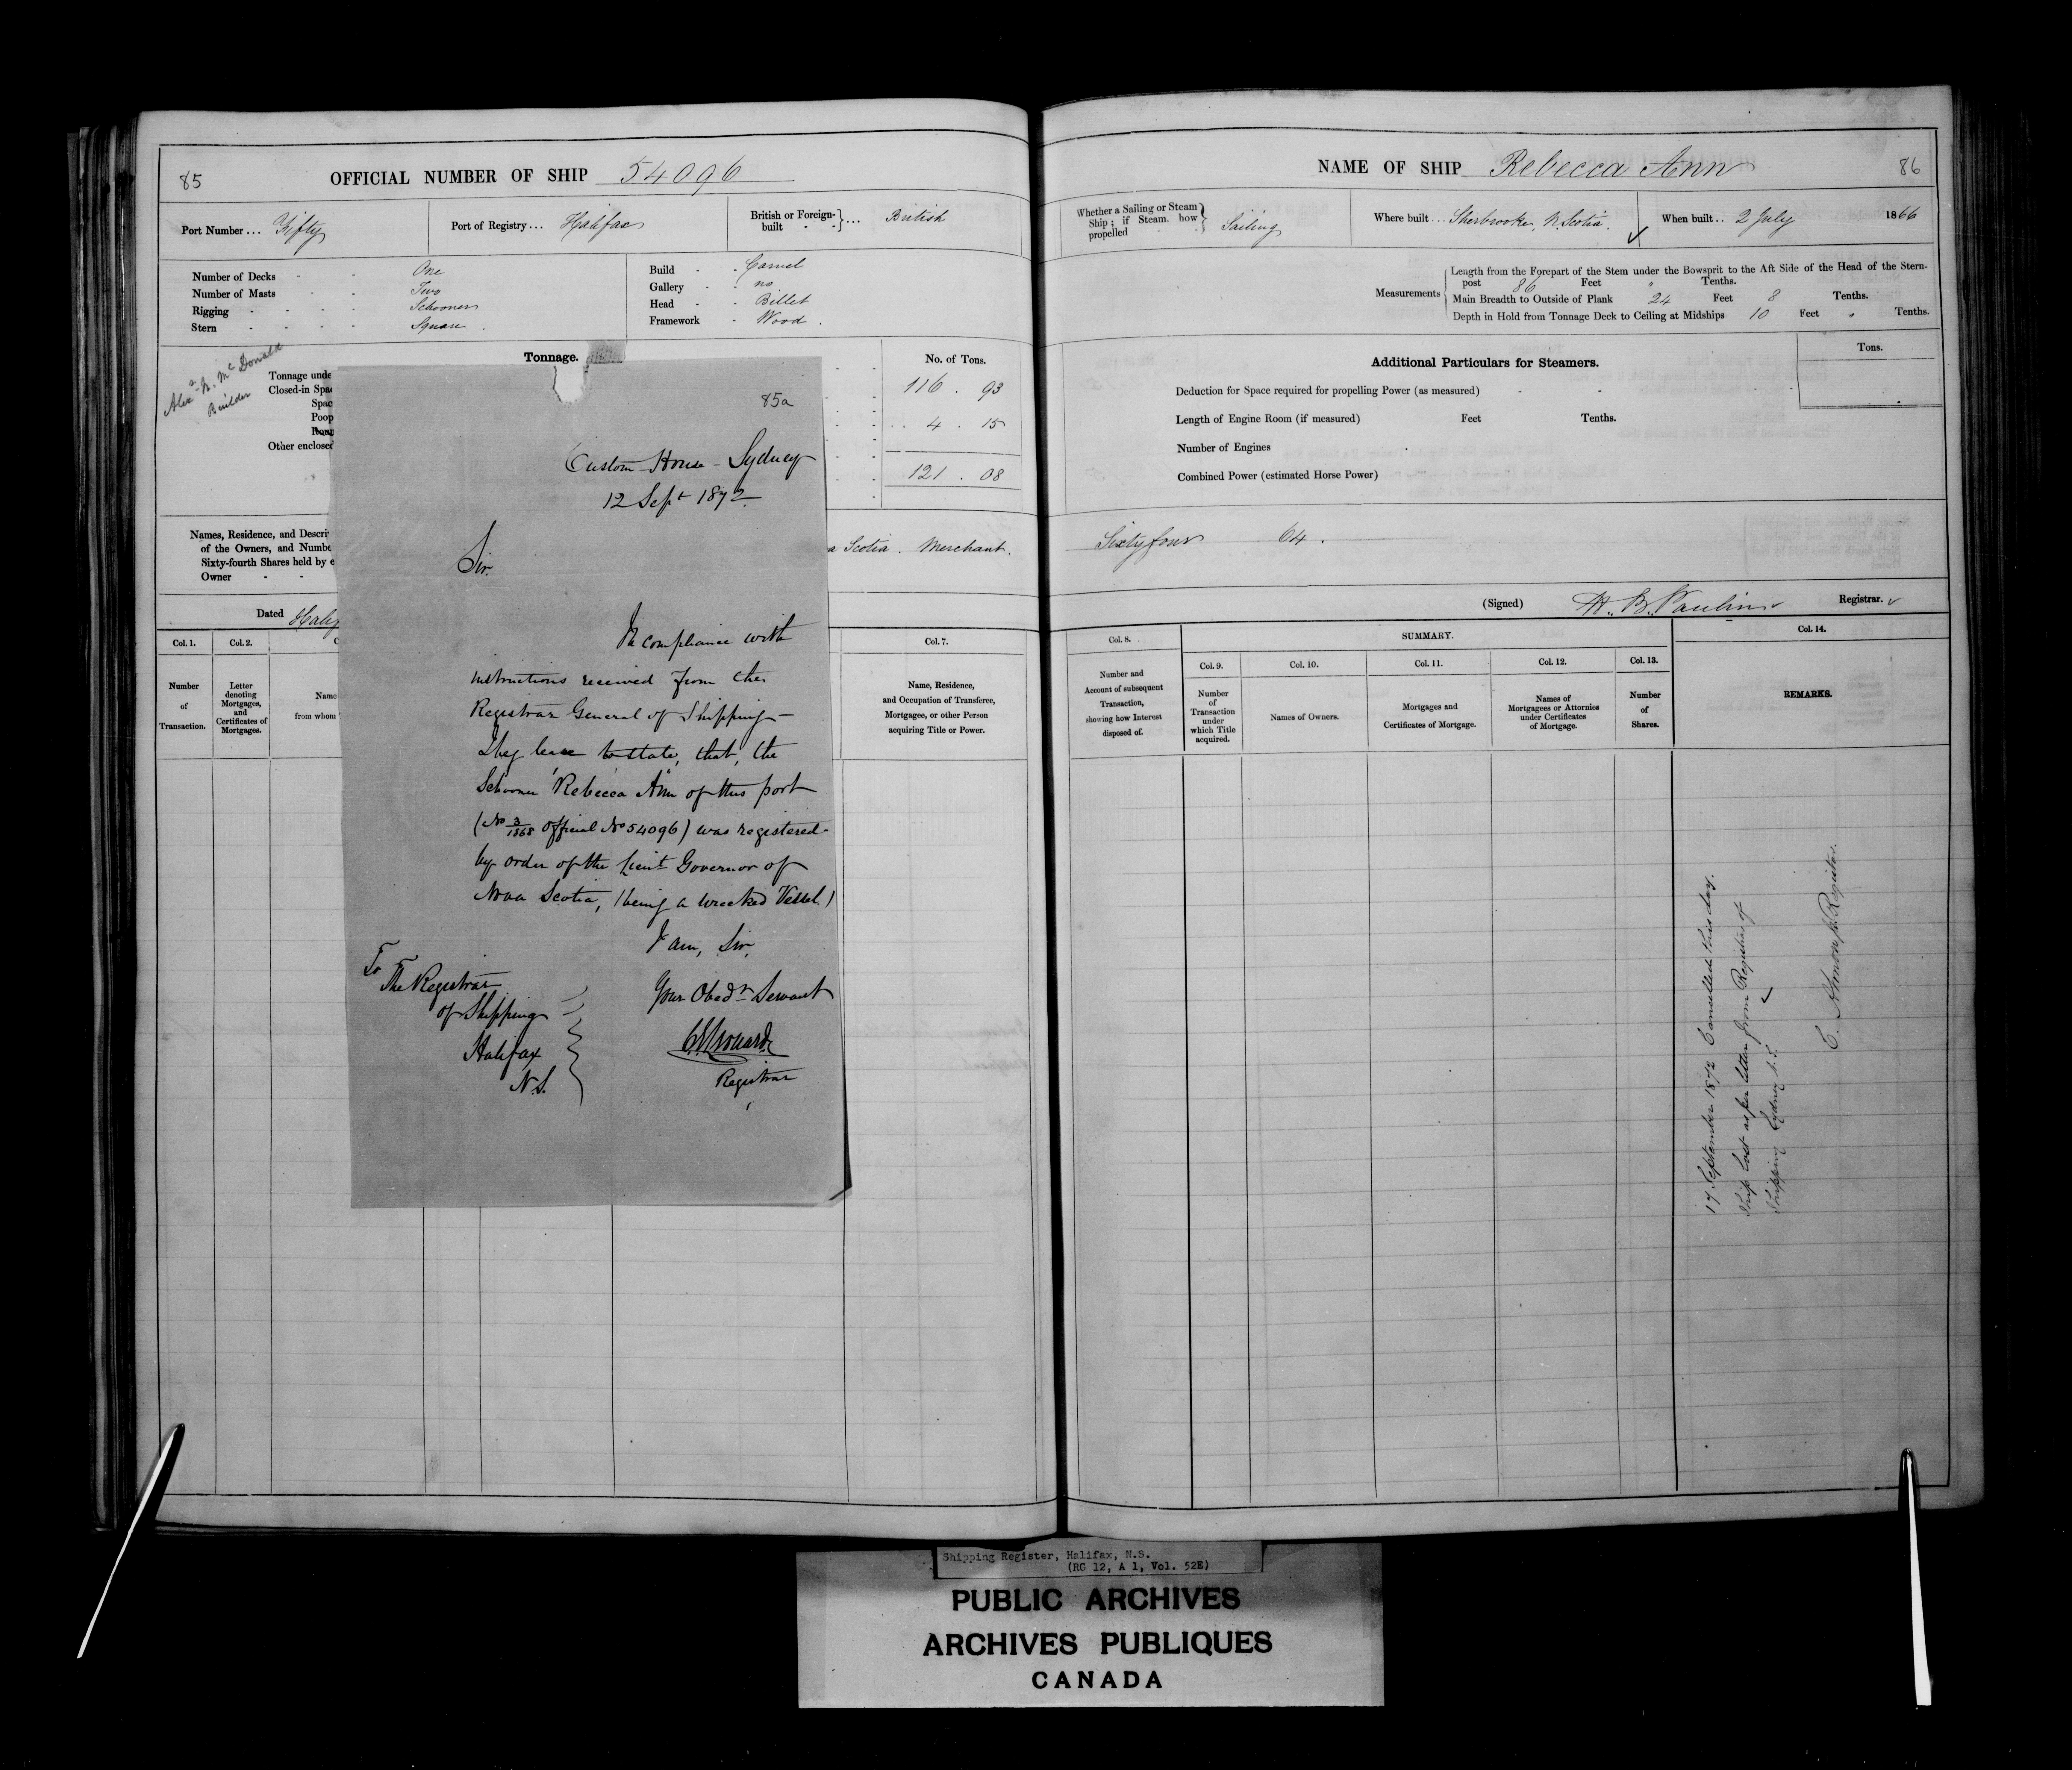 85
OFFICIAL NUMBER OF SHIP 54096
Port Number ... Fifty
Port of Registry ... Halifax
British or Foreign-built } ... British
Number of Decks - - One
Number of Masts - - Two
Rigging - - - - Schooner
Stern - - - - Square
Build - - Carvel
Gallery - - no
Head - - Billet
Framework - Wood.
Alexr N. McDonald
Builder
Tonnage.
No. of Tons.
Tonnage unde
Closed-in Spac
Spac
Poop
Roun
Other enclosed
116 . 93
4 . 15
121 . 08
Names, Residence, and Descri
of the Owners, and Numbe
Sixty-fourth Shares held by e
Owner - -
a Scotia. Merchant.
Dated Halif
Col. 1.
Col. 2.
C
Col. 7.
Number
of
Transaction.
Letter
denoting
Mortgages,
and
Certificates of
Mortgages.
Name
from whom
Name, Residence,
and Occupation of Transferee,
Mortgagee, or other Person
acquiring Title or Power.
85a
Custom House - Sydney
12 Sept 1872
Sir
In compliance with
instructions received from the
Registrar General of Shipping -
I beg leave to state, that, the
Schooner "Rebecca Ann" of this port
(No 3/1868 official No 54096) was registered
by order of the Lieut Governor of
Nova Scotia, (being a wrecked Vessel.)
I am, Sir,
Your Obedt Servant
Registrar
To
The Registrar
of Shipping
Halifax
N.S.
NAME OF SHIP Rebecca Ann
86
Whether a Sailing or Steam
Ship; if Steam. how
propelled - - } Sailing
Where built ... Sherbrooke, N. Scotia.
When built .. 2 July 1866
Measurements
Length from the Forepart of the Stem under the Bowsprit to the Aft Side of the Head of the Stern-
post 86 Feet " Tenths.
Main Breadth to Outside of Plank 24 Feet 8 Tenths.
Depth in Hold from Tonnage Deck to Ceiling at Midships 10 Feet " Tenths.
Additional Particulars for Steamers.
Tons.
Deduction for Space required for propelling Power (as measured) - -
Length of Engine Room (if measured) Feet Tenths.
Number of Engines
Combined Power (estimated Horse Power)
Sixty four 64.
(Signed) H. B. Paulin Registrar.
Col. 8.
SUMMARY.
Col. 14.
Col. 9.
Col. 10.
Col. 11.
Col. 12.
Col. 13.
Number and
Account of subsequent
Transaction,
showing how Interest
disposed of.
Number
of
Transaction
under
which Title
acquired.
Names of Owners.
Mortgages and
Certificates of Mortgage.
Names of
Mortgagees or Attornies
under Certificates
of Mortgage.
Number
of
Shares.
REMARKS.
17 September 1872 Cancelled this day.
Ship lost as per letter from Registrar of
Shipping Sydney N.S.
Registrar.
Shipping Register, Halifax, N.S.
(RG 12, A 1, Vol. 52E)
PUBLIC ARCHIVES
ARCHIVES PUBLIQUES
CANADA